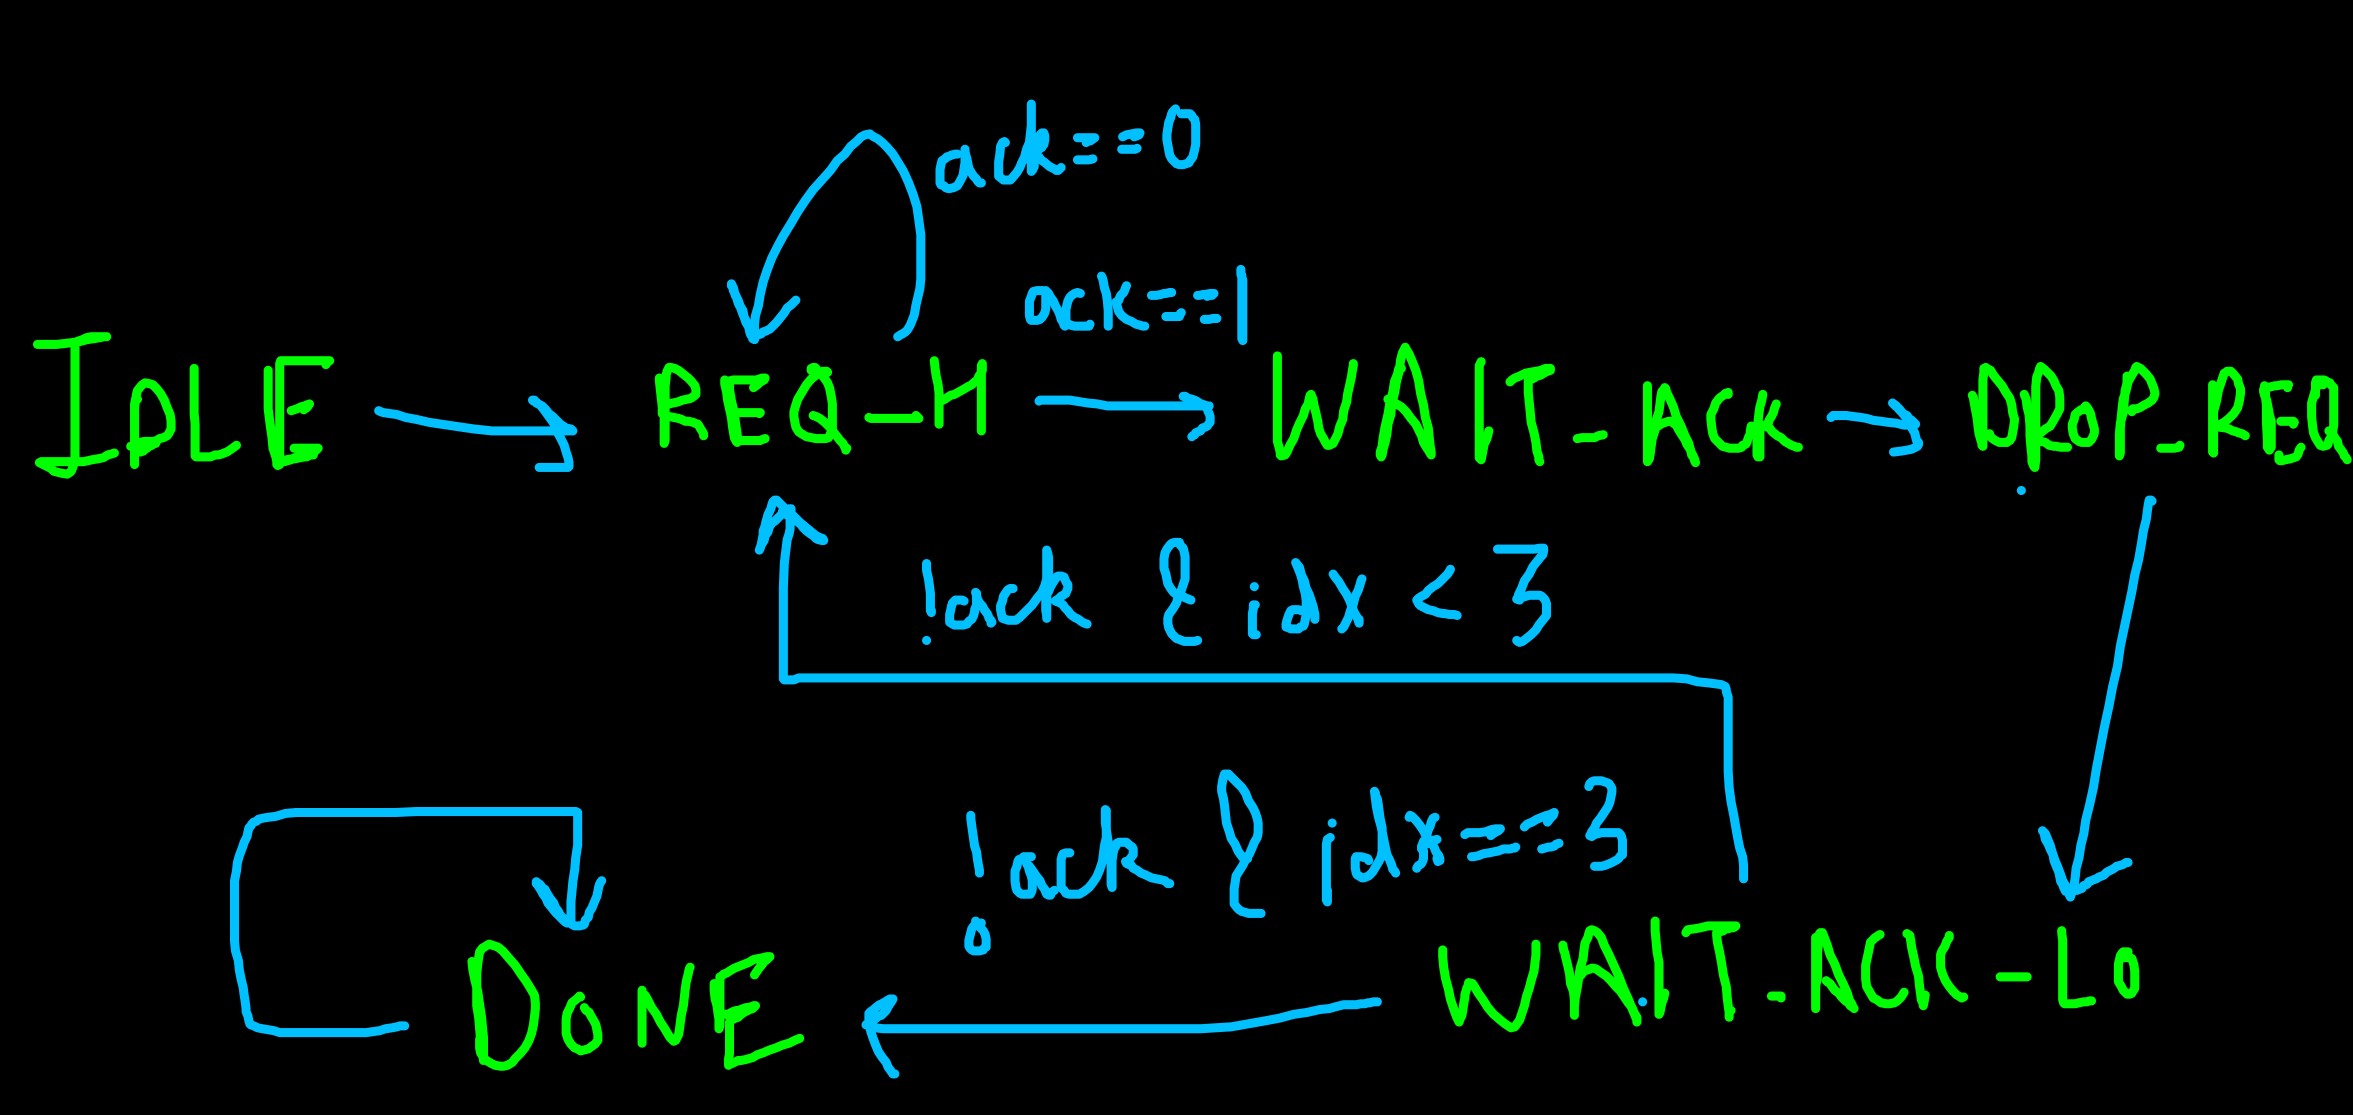 ack==0
ack==1
IDLE REQ_H WAIT_ACK DROP_REQ
!ack & idx < 3
!ack & idx==3
DONE WAIT_ACK_LO